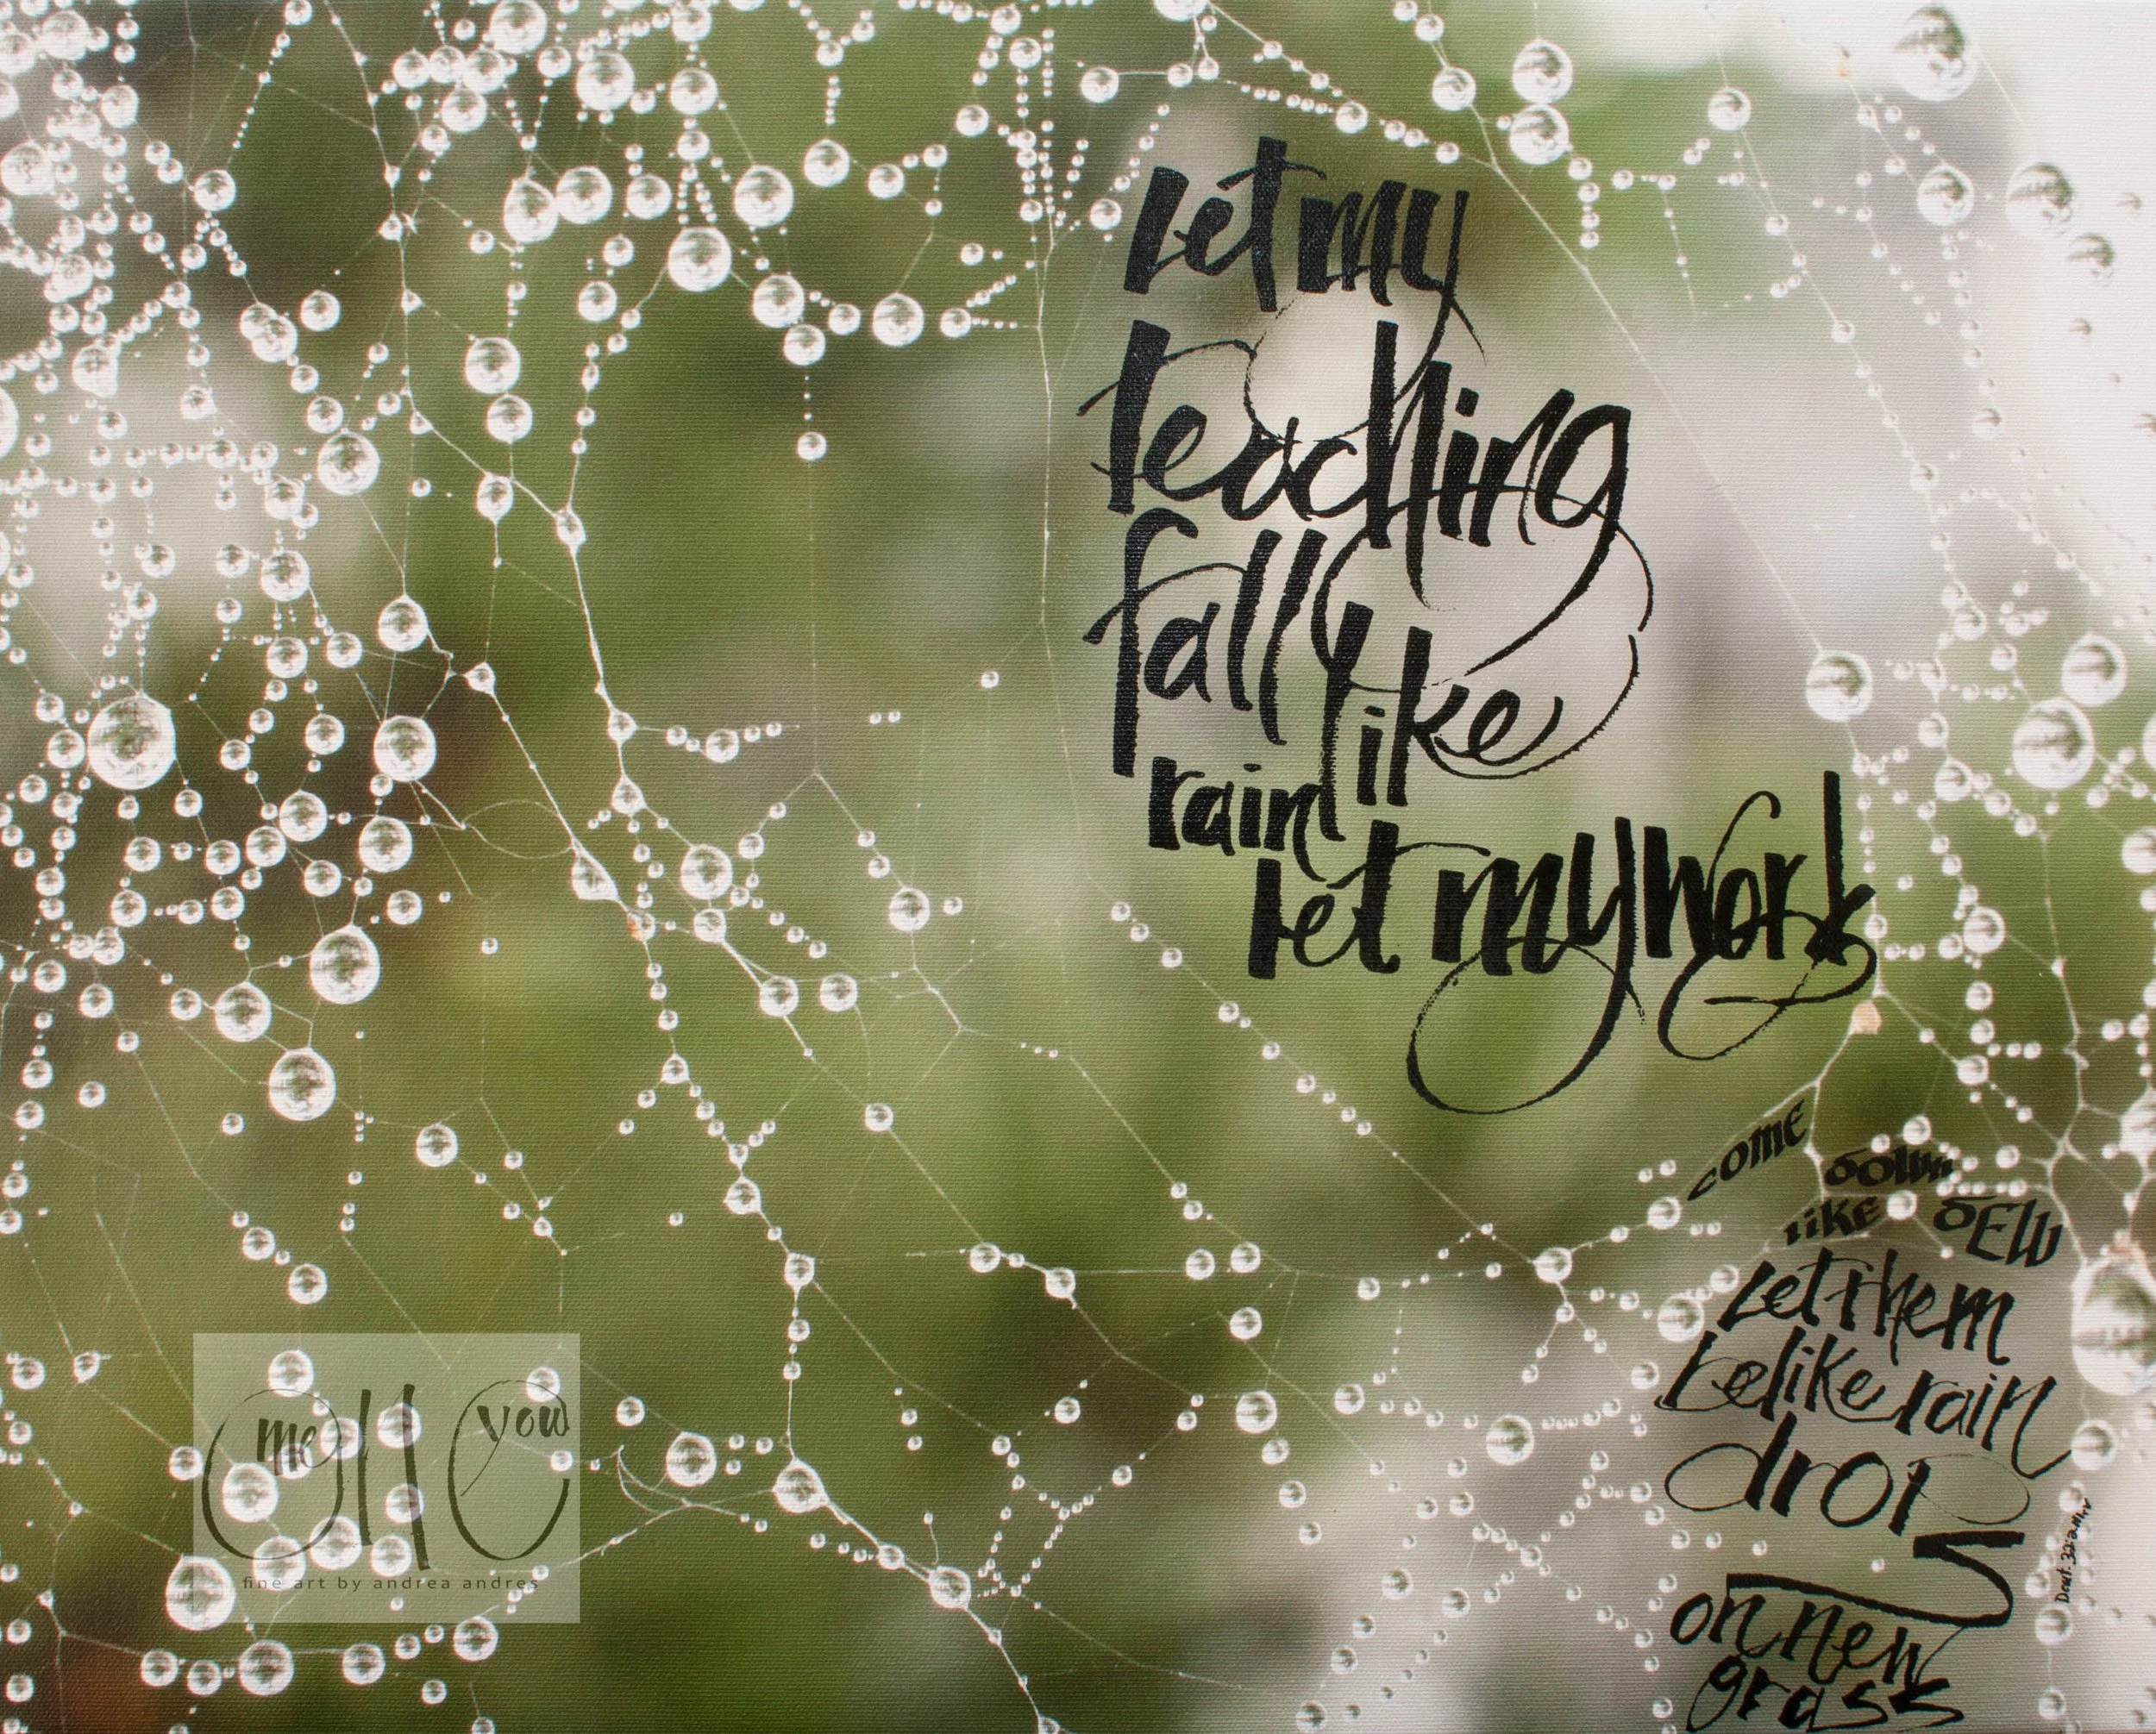 Let my
teaching
fall like
rain
let my work
come down
like dEW
Let them
be like rain
drops
on new
grass
me you
one
fine art by andrea andres